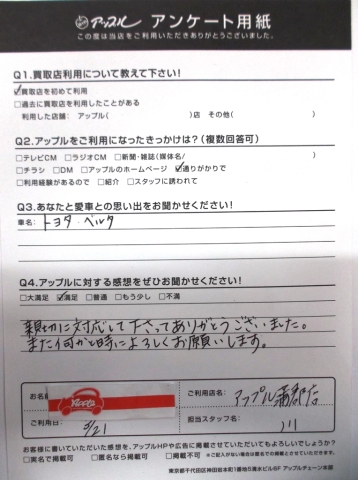 アップル アンケート用紙
この度は当店をご利用いただきありがとうございました。
Q1.買取店利用について教えて下さい!
☑買取店を初めて利用
□過去に買取店を利用したことがある
利用した店舗: アップル( )店 その他( )
Q2.アップルをご利用になったきっかけは?(複数回答可)
□テレビCM □ラジオCM □新聞・雑誌(媒体名/ )
□チラシ □DM □アップルのホームページ ☑通りがかりで
□利用経験があるので □紹介 □スタッフに誘われて
Q3.あなたと愛車との思い出をお聞かせください!
車名: トヨタ・ベルタ
Q4.アップルに対する感想をぜひお聞かせください!
□大満足 ☑満足 □普通 □もう少し □不満
親切に対応して下さってありがとうございました。
また何かと時によろしくお願いします。
お名前
Apple
ご利用店名: アップル蒲郡店
ご利用日: 3/21
担当スタッフ名:
お客様に書いていただいた感想を、アップルHPや広告に掲載させていただいてもよろしいでしょうか?
□実名で掲載可 □匿名なら掲載可 □掲載不可 ※ご記入がない場合は匿名での掲載とさせていただきます。
東京都千代田区神田岩本町1番地5清水ビル6F アップルチェーン本部